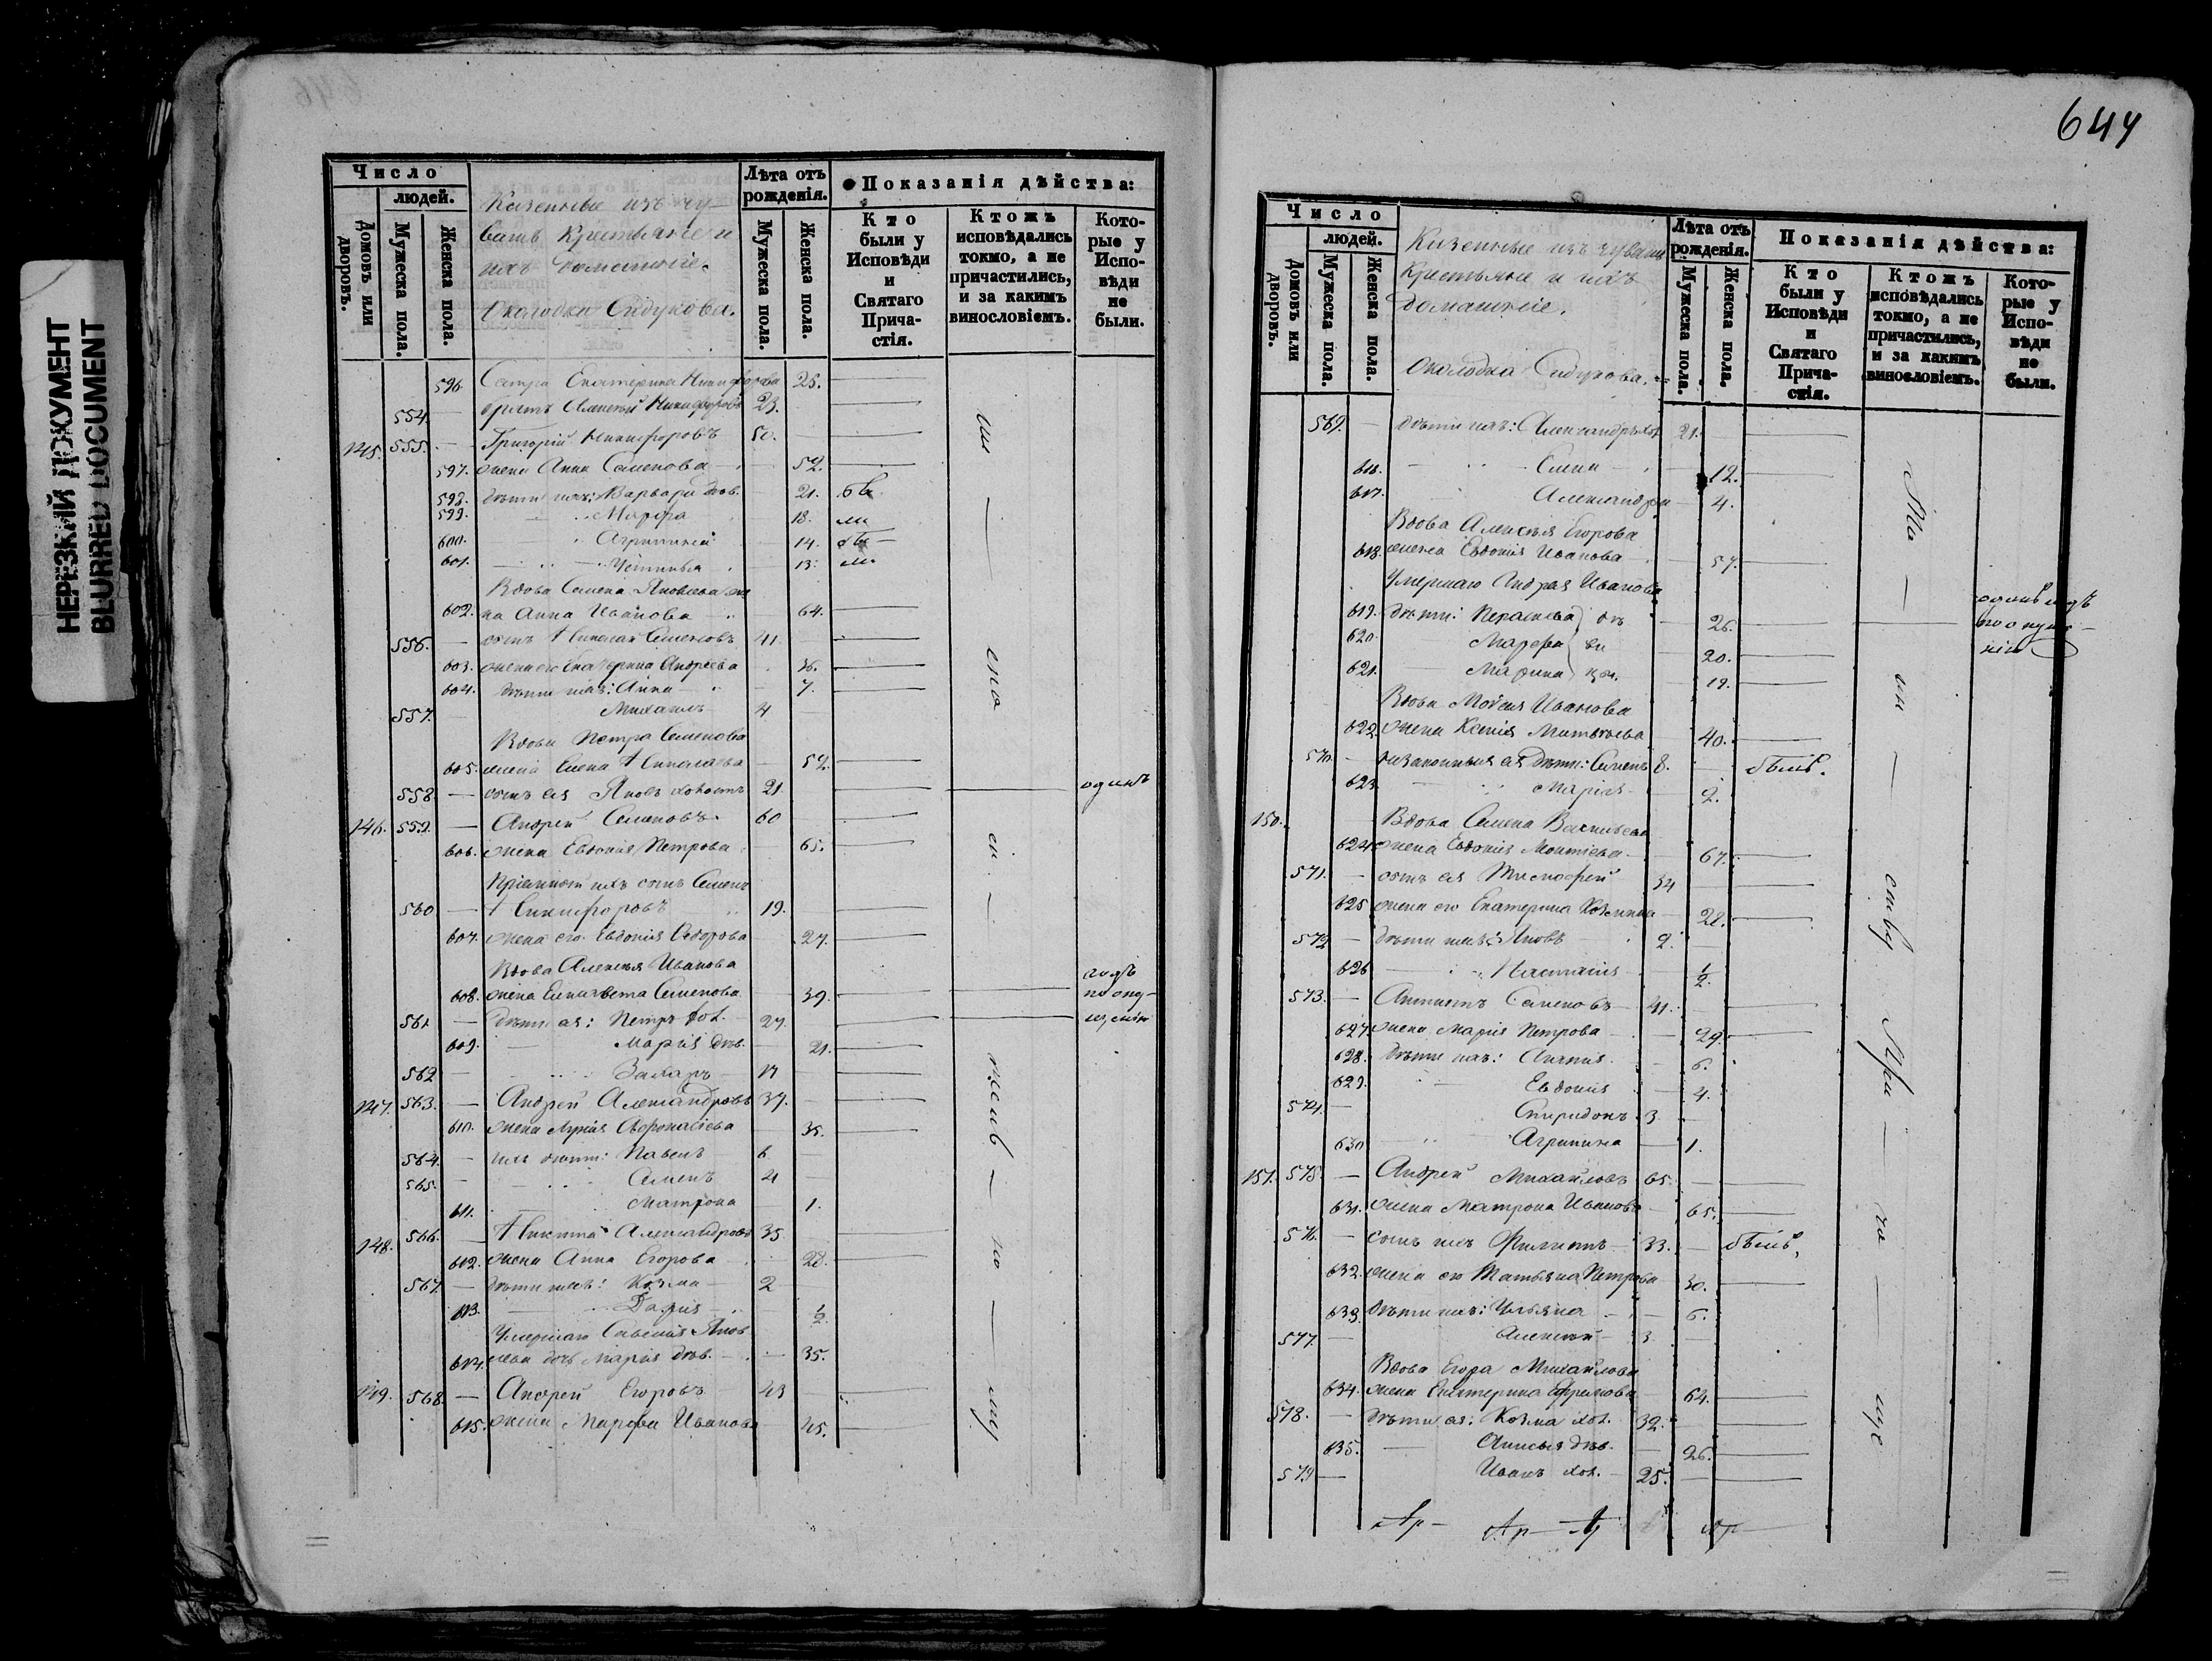 НЕРЕЗКИЙ ДОКУМЕНТ
BLURRED DOCUMENT
Число
людей.
Домовъ или дворовъ.
Мужеска пола.
Женска пола.
Казенные изъ чу
вашъ крестьяне и
ихъ домашніе.
Околодка Сидукова.
Лѣта отъ рожденія.
Мужеска пола.
Женска пола.
Показанія дѣйства:
Кто были у Исповѣди и Святаго Прича-стія.
Ктожъ исповѣдались токмо, а не причастились, и за какимъ винословіемъ.
Кото-рые у Испо-вѣди не были.
596. Сестра Екатерина Никифорова 25.
554. братъ Алексѣй Никифоровъ 23.
145. 555. Григорій Никифоровъ 50.
597. жена Анна Семенова 52.
598. дѣти ихъ: Варвара дѣв. 21.
599. Марфа 18.
600. Агрипина 14.
601. Устинья 13.
Вдова Семена Яковлева же
602. на Анна Иванова 64.
556. сынъ Николай Семеновъ 41.
603. жена его Екатерина Андреева 36.
604. дѣти ихъ: Анна 7.
557. Михаилъ 4
Вдова Петра Семенова
605. жена Елена Николаева 52.
558. сынъ ея Яковъ холостъ 21. одинъ
146. 559. Андрей Семеновъ 60
606. жена Евдокія Петрова 65.
Пріемный ихъ сынъ Семенъ
560 Никифоровъ 19.
607. жена его Евдокія Федорова 27.
Вдова Алексѣя Иванова годъ
608. жена Елизавета Семенова 39. по опу-
561. дѣти ея: Петръ хол. 27. щенію
609. Марія дѣв. 21.
562 Захаръ 17
147. 563. Андрей Александровъ 37.
610. жена Лукія Афонасіева 35.
564. ихъ дѣти: Павелъ 6
565. Семенъ 4
611. Матрона 1.
148. 566. Никита Александровъ 35
612. жена Анна Егорова 28.
567. дѣти ихъ: Козма 2
613. Дарія ½
Умершаго Савелія Яков
614. лева дочь Марія дѣв. 35.
149. 568. Андрей Егоровъ 43
615. жена Марфа Иванова 45.
644
Число
людей.
Домовъ или дворовъ.
Мужеска пола.
Женска пола.
Казенные изъ чувашъ
крестьяне и ихъ
домашніе.
Околодка Сидукова.
Лѣта отъ рожденія.
Мужеска пола.
Женска пола.
Показанія дѣйства:
Кто были у Исповѣди и Святаго Прича-стія.
Ктожъ исповѣдались токмо, а не причастились, и за какимъ винословіемъ.
Кото-рые у Испо-вѣди не были.
569. дѣти ихъ: Александръ хол. 21.
616. Елена 12.
617. Александра 4.
Вдова Алексѣя Егорова
618. жена Евдокія Иванова 57.
Умершаго Андрея Иванова
619. дѣти: Параскева дѣ 26. одинъ годъ по опуще-нію
620. Марфа ви 20.
621. Марина цы. 19.
Вдова Моисея Иванова
622. жена Ксенія Матвѣева 40.
570. незаконныя ея дѣти: Семенъ 8. былъ.
623. Марія 2.
150. Вдова Семена Васильева
624. жена Евдокія 67.
571. сынъ ея Тимофей 34
625 жена его Екатерина Козмина 28.
572 дѣти ихъ: Яковъ 2.
626 Настасія ½
573. Антипъ Семеновъ 41.
627. жена Марія Петрова 29.
628. дѣти ихъ: 6.
629. Евдокія 4.
574. Спиридонъ 3
630 Агрипина 1.
151. 575. Андрей Михайловъ 65.
631. жена Матрона Иванова 65.
576. сынъ ихъ Филиппъ 33. былъ.
632. жена его Татьяна Петрова 30.
633. дѣти ихъ: Ульяна 6.
577. Алексѣй 3
Вдова Егора Михайлова
634. жена Екатерина Ефремова 64.
578. дѣти ея: Козма хол. 32.
635. Анисья дѣв. 26.
579 Иванъ хол. 25.